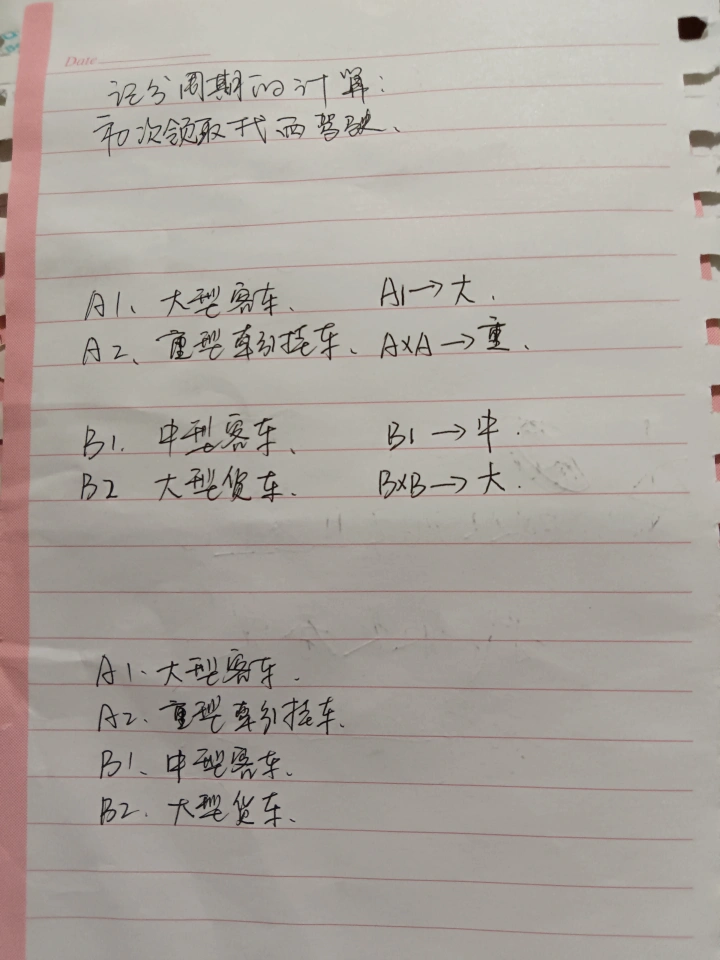 Date
记分周期的计算:
初次领取 驾驶、
A1、大型客车、 A1→大.
A2、重型牵引挂车、 A×A→重、
B1. 中型客车、 B1→中.
B2 大型货车. B×B→大.
A1.大型客车.
A2.重型牵引挂车.
B1、中型客车.
B2.大型货车.